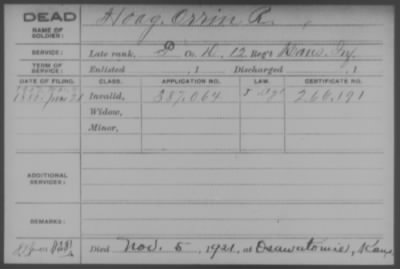 DEAD
NAME OF SOLDIER: Hoag, Orrin R.
SERVICE: Late rank, Co. H, 12 Reg't Kans. Inf.
TERM OF SERVICE: Enlisted , 1 Discharged , 1
DATE OF FILING. CLASS. APPLICATION NO. LAW. CERTIFICATE NO.
Invalid, 387.064 260.191
Widow,
Minor,
ADDITIONAL SERVICES:
REMARKS:
Died Nov. 5, 1921, at Osawatomie, Kans